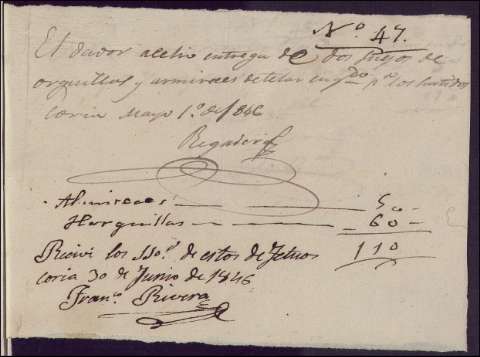 Nº 47.
El dador  entrega de dos juegos de
orquillas y armiraces de telar  pª los
Coria Mayo 1º de 1846
Regadera
Almiraces 50
Horquillas 60
110
Recivi los 110 rˢ de estos
Coria 30 de Junio de 1846
Franº. Rivera